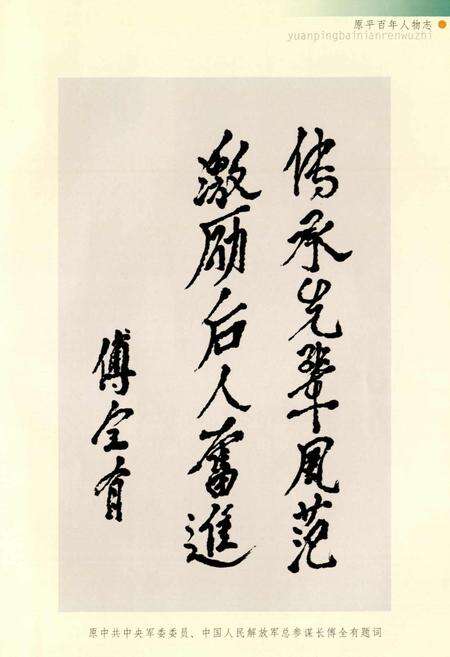 原平百年人物志
yuanpingbainianrenwuzhi
传承先輩风范
激励后人奮進
傅全有
原中共中央军委委员、中国人民解放军总参谋长傅全有题词